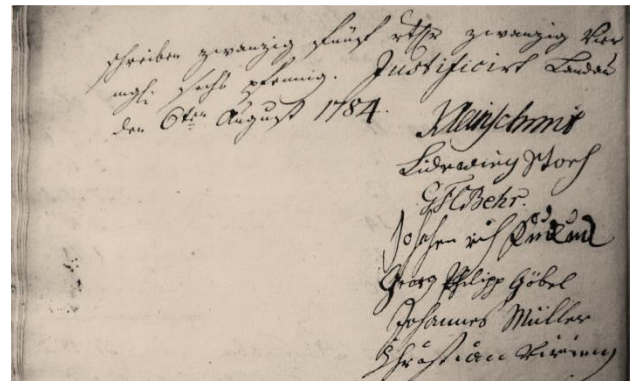 schreiben zwanzig fünf rthr zwanzig Vier
mgl. sechs pfennig. Justificirt Landau
den 6ten August 1784.
Kleinschmit
Ludewig Storck
Behr.
Johannes
Georg Philipp Göbel
Johannes Müller
Christian